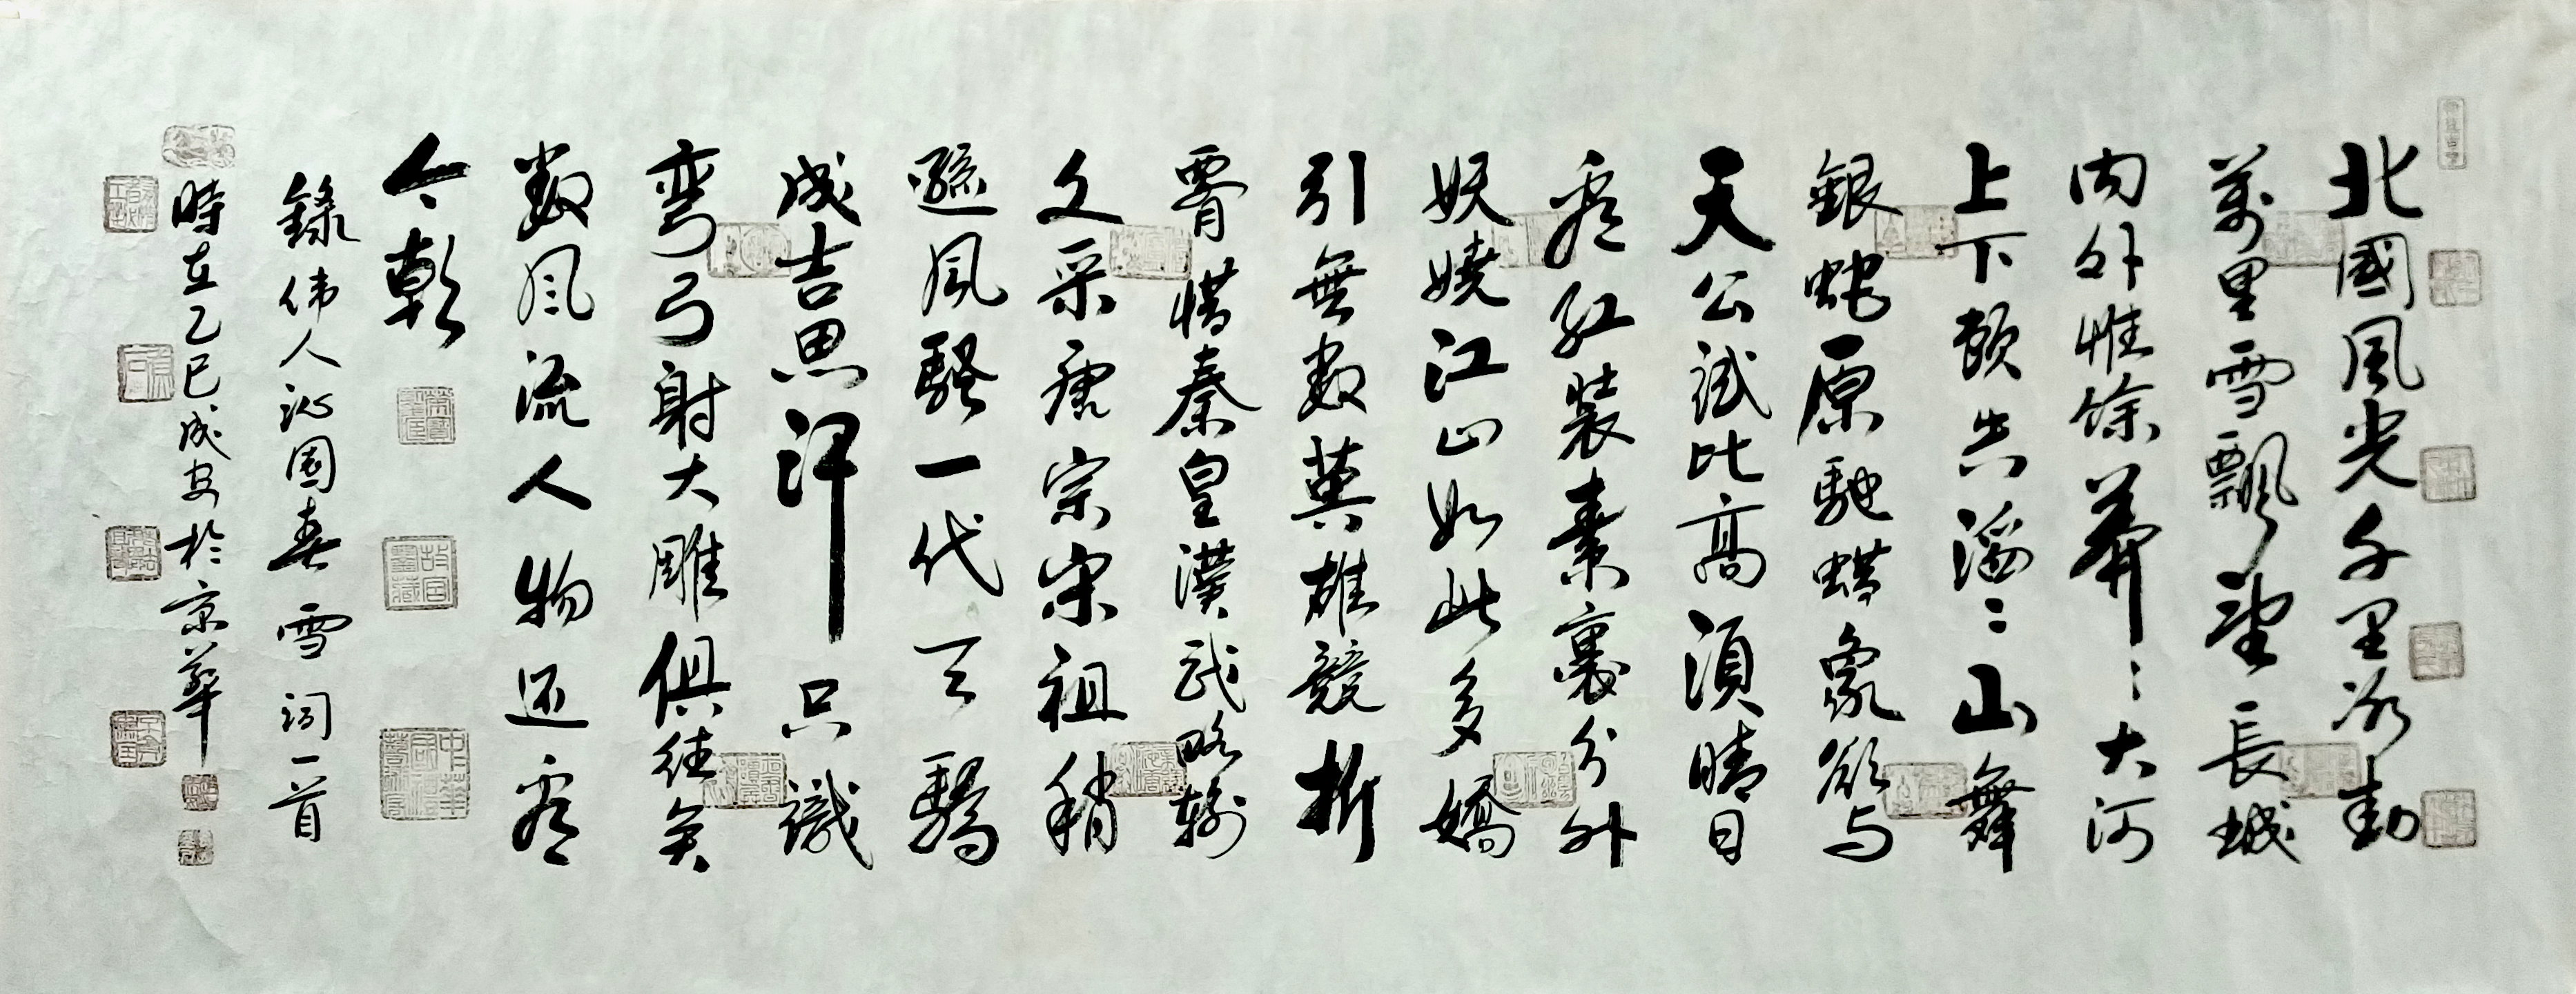 北國風光千里冰封
萬里雪飄望長城
内外惟馀莽〻大河
上下頓失滔〻山舞
銀蛇原馳蜡象欲与
天公試比高須晴日
看紅裝素裹分外
妖嬈江山如此多嬌
引無數英雄競折
腰惜秦皇漢武略輸
文采唐宗宋祖稍
遜風騷一代天驕
成吉思汗只識
弯弓射大雕俱往矣
數風流人物还看
今朝
錄伟人沁園春雪詞一首
時在乙巳成安於京華